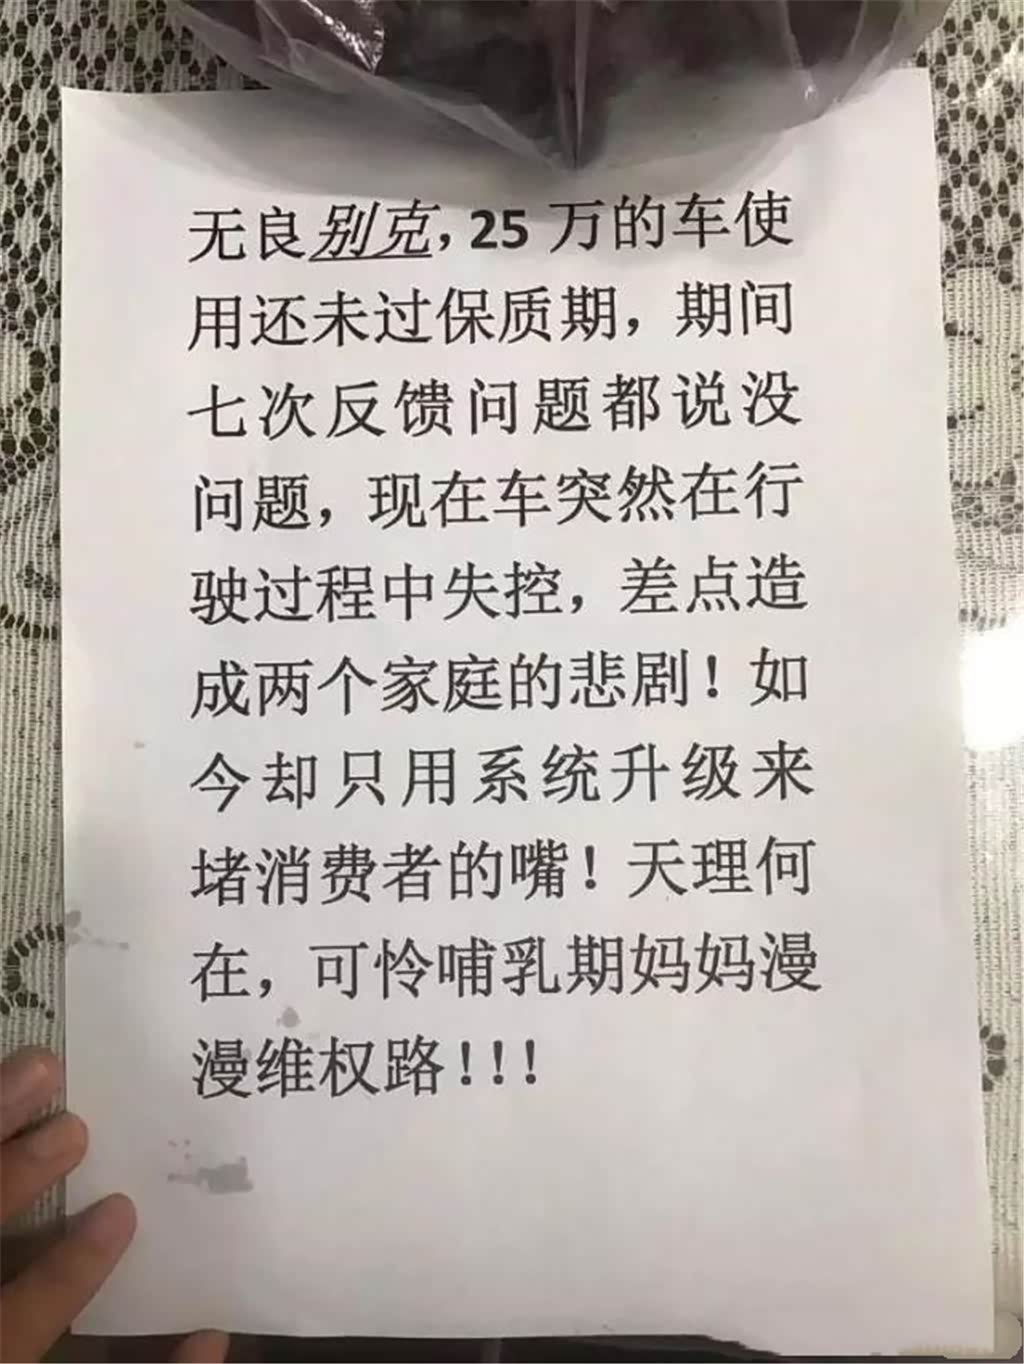 无良别克，25 万的车使
用还未过保质期，期间
七次反馈问题都说没
问题，现在车突然在行
驶过程中失控，差点造
成两个家庭的悲剧！如
今却只用系统升级来
堵消费者的嘴！天理何
在，可怜哺乳期妈妈漫
漫维权路！！！